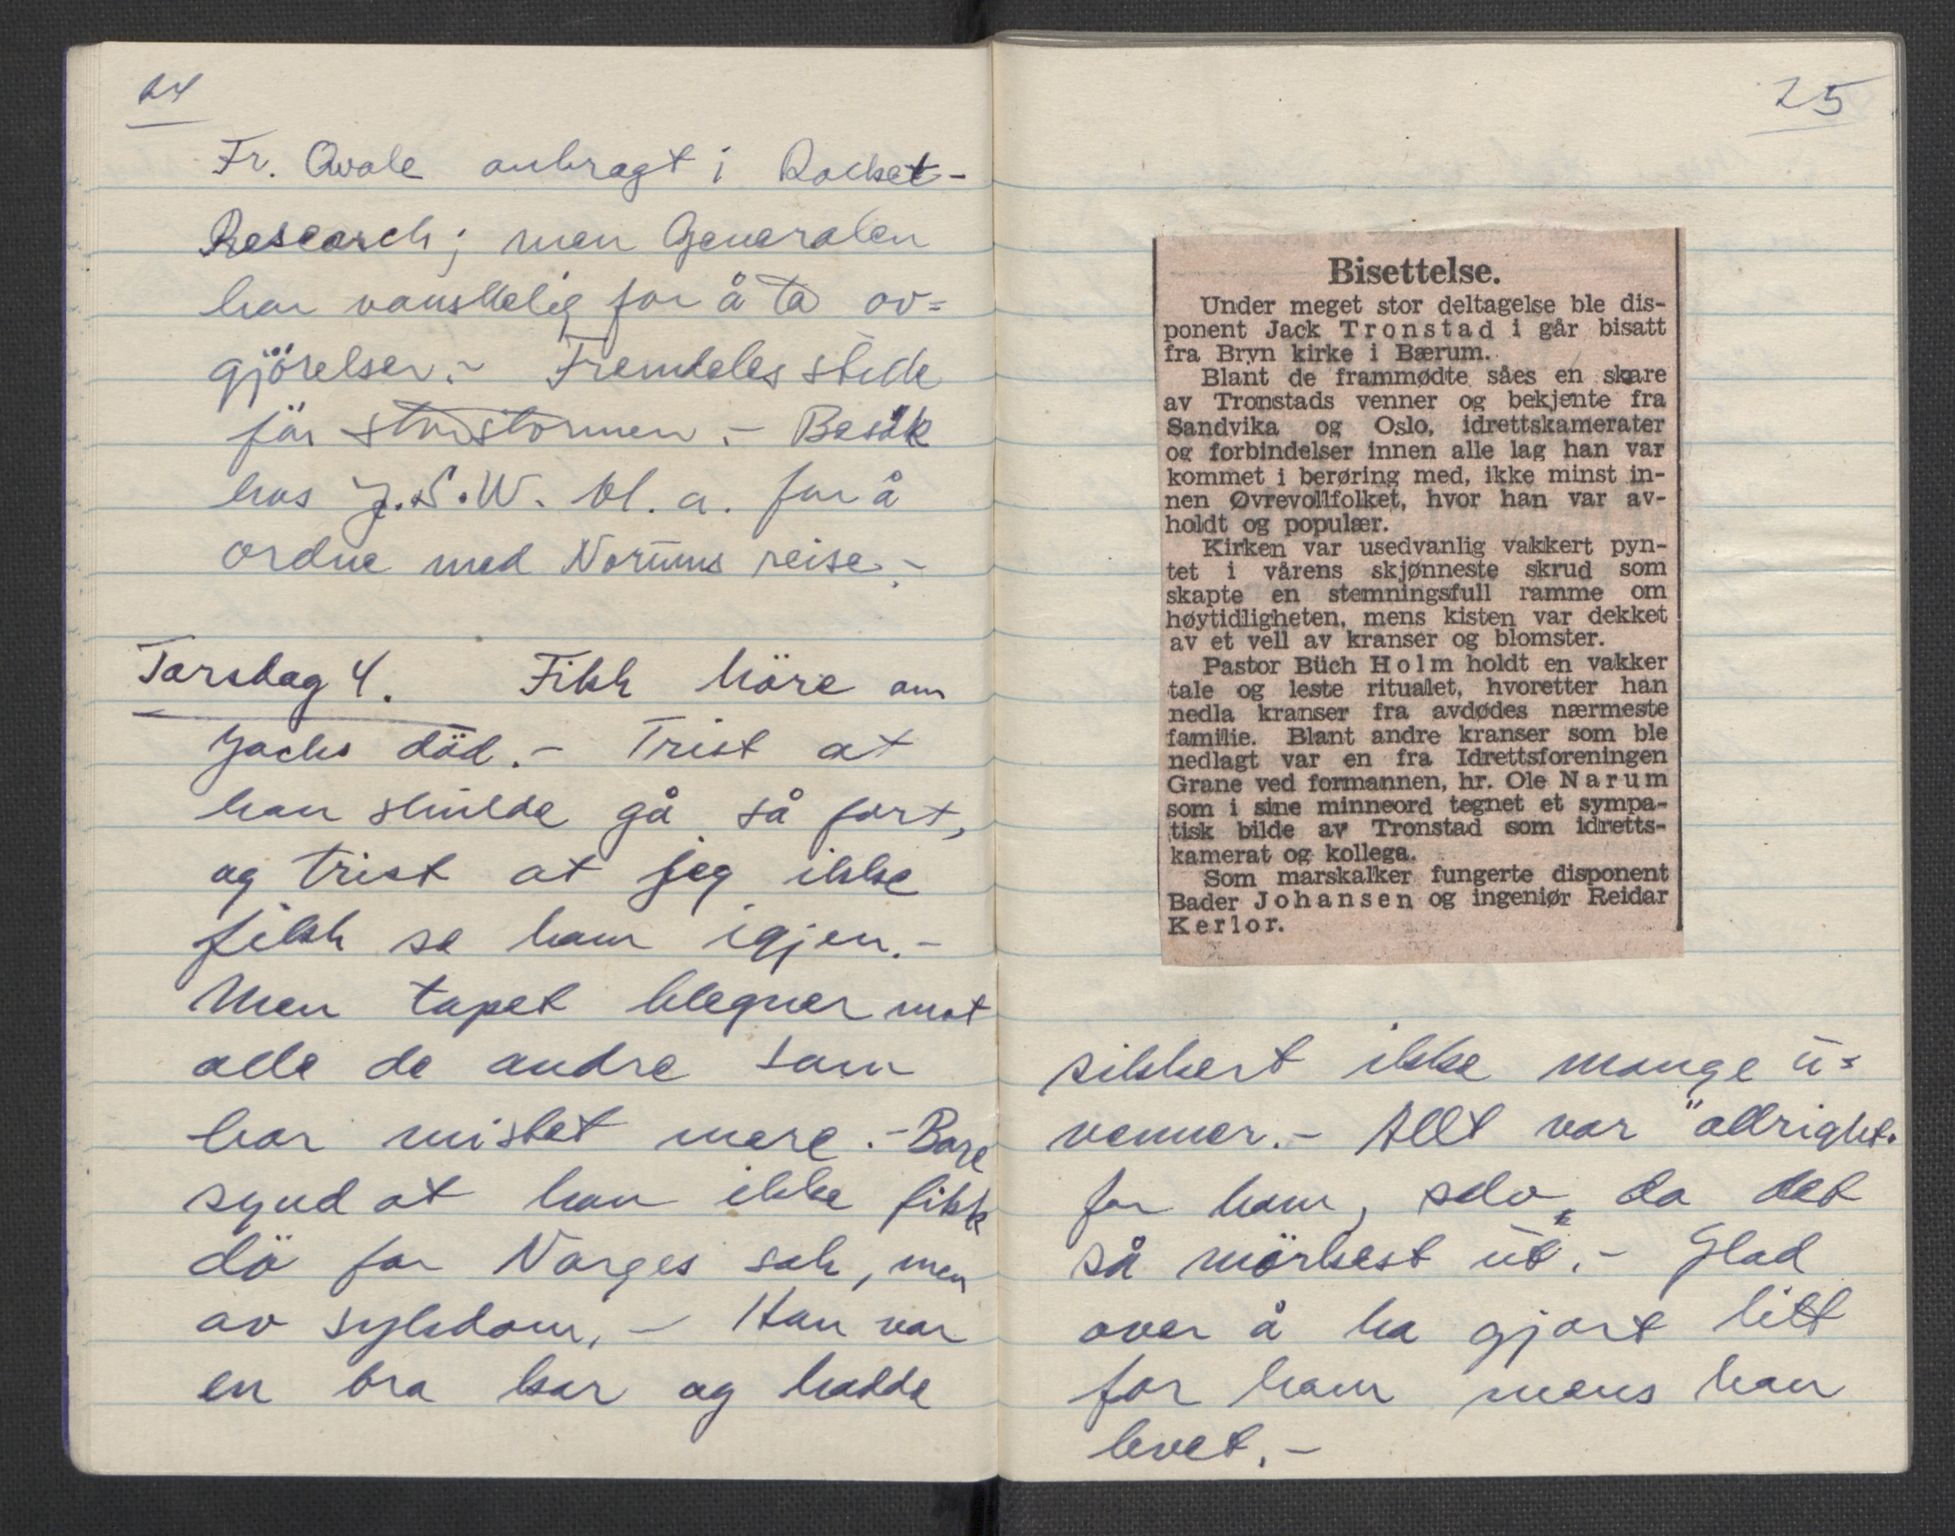 24
Fr. Qvale anbragt i Rocket-
Research; men Generalen
har vanskelig for å ta av=
gjörelser.- Fremdeles stille
för stormen.- Besök
hos J.S.W. bl.a. for å
ordne med Norums reise.-
Torsdag 4. Fikk höre om
Jacks död.- Trist at
han skulde gå så fort,
og trist at jeg ikke
fikk se ham igjen.-
Men tapet blegner mot
alle de andre som
har mistet mere.- Bare
synd at han ikke fikk
dö for Norges sak, men
av sykdom.- Han var
en bra kar og hadde
25
Bisettelse.
Under meget stor deltagelse ble dis-
ponent Jack Tronstad i går bisatt
fra Bryn kirke i Bærum.
Blant de frammødte såes en skare
av Tronstads venner og bekjente fra
Sandvika og Oslo, idrettskamerater
og forbindelser innen alle lag han var
kommet i berøring med, ikke minst in-
nen Øvrevollfolket, hvor han var av-
holdt og populær.
Kirken var usedvanlig vakkert pyn-
tet i vårens skjønneste skrud som
skapte en stemningsfull ramme om
høytidligheten, mens kisten var dekket
av et vell av kranser og blomster.
Pastor Büch Holm holdt en vakker
tale og leste ritualet, hvoretter han
nedla kranser fra avdødes nærmeste
familie. Blant andre kranser som ble
nedlagt var en fra Idrettsforeningen
Grane ved formannen, hr. Ole Narum
som i sine minneord tegnet et sympa-
tisk bilde av Tronstad som idretts-
kamerat og kollega.
Som marskalker fungerte disponent
Bader Johansen og ingeniør Reidar
Kerlor.
sikkert ikke mange u=
venner.- Allt var "allright"
for ham, selv da det
så mörkest ut.- Glad
over å ha gjort litt
for ham mens han
levet.-